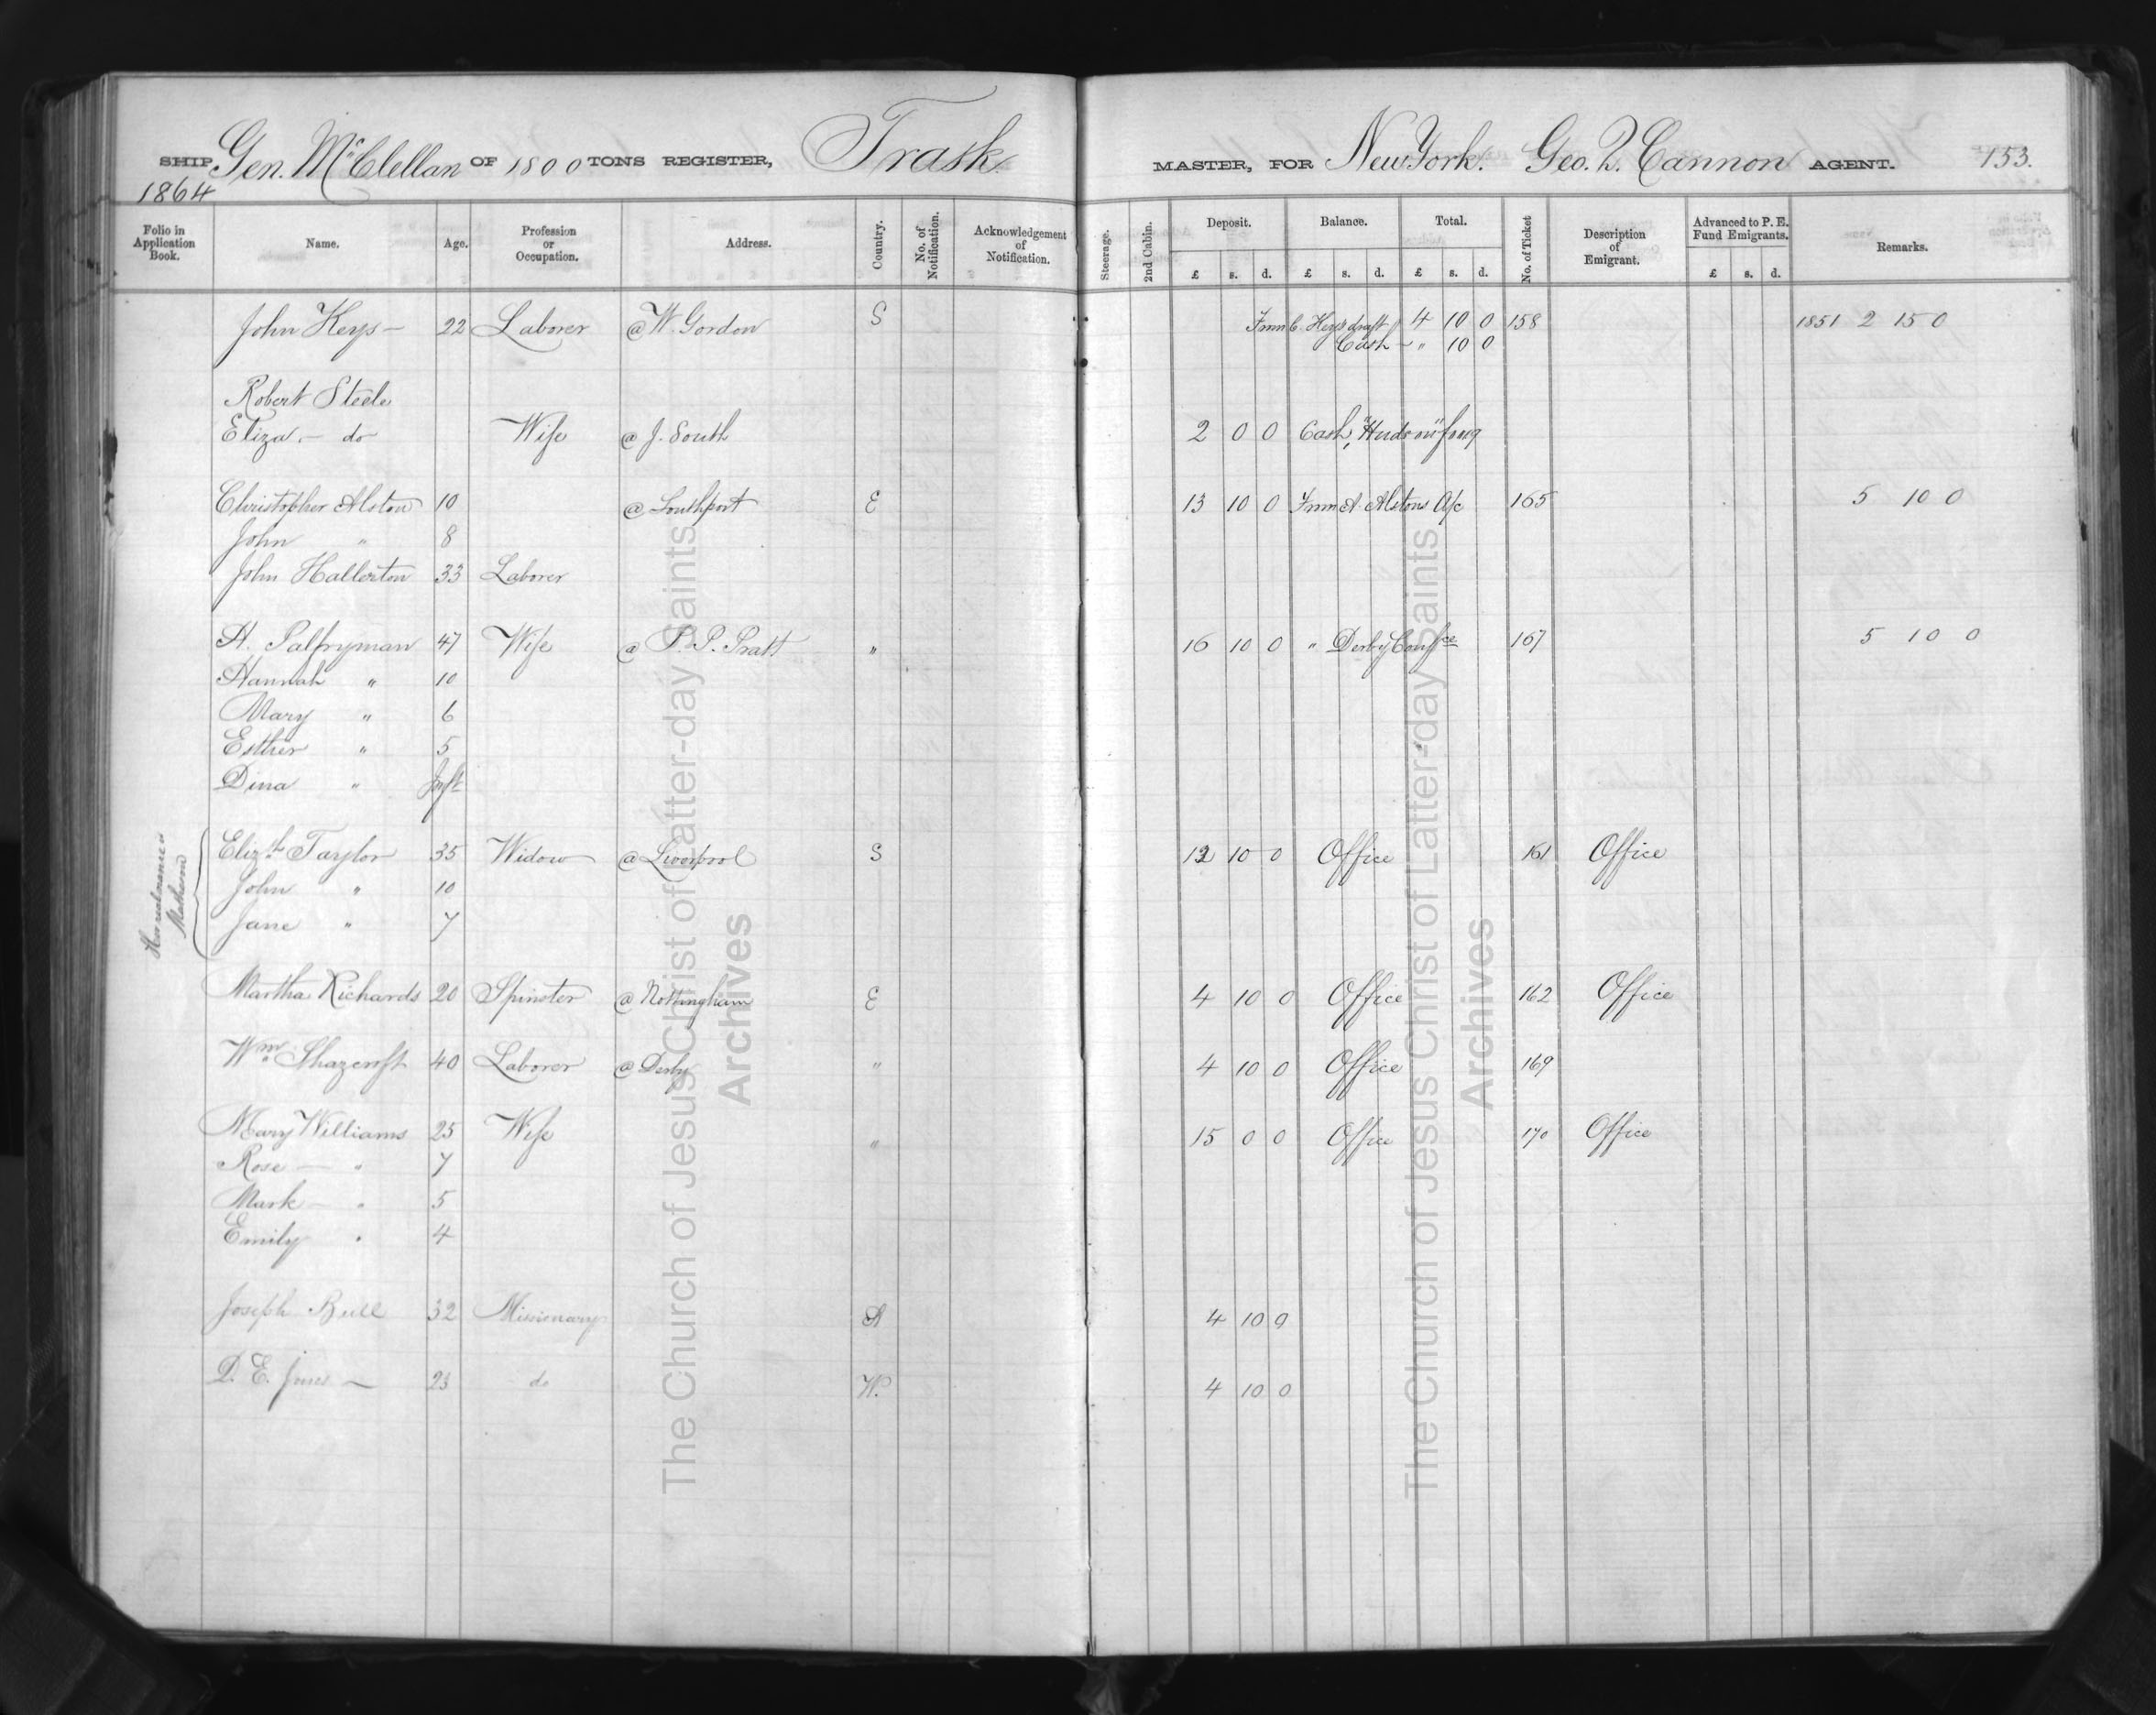 SHIP Gen. McClellan OF 1800 TONS REGISTER, Trask MASTER, FOR New York. Geo. Q. Cannon AGENT. 153.
1864
Folio in Application Book. Name. Age. Profession or Occupation. Address. Country. No. of Notification. Acknowledgement of Notification. Steerage. 2nd Cabin. Deposit. Balance. Total. No. of Ticket Description of Emigrant. Advanced to P. E. Fund Emigrants. Remarks.
£ s. d. £ s. d. £ s. d. £ s. d.
John Keys — 22 Laborer @ W. Gordon S From C. Keys draft 4 10 0 158 1851 2 15 0
Cash - " 10 0
Robert Steele
Eliza — do Wife @ J. South 2 0 0 Cash, "Hudson"
Christopher Alston 10 @ Southport E 13 10 0 From A. Alstons A/c 165 5 10 0
John " 8
John Hallerton 33 Laborer
H. Palfryman 47 Wife @ P. P. Pratt " 16 10 0 " Derby Confce 167 5 10 0
Hannah " 10
Mary " 6
Esther " 5
Dina " Inft
Elizth Taylor 35 Widow @ Liverpool S 12 10 0 Office 161 Office
John " 10
Jane " 7
Martha Richards 20 Spinster @ Nottingham E 4 10 0 Office 162 Office
Wm. Shazcroft 40 Laborer @ Derby " 4 10 0 Office 169
Mary Williams 25 Wife " 15 0 0 Office 170 Office
Rose — " 7
Mark — " 5
Emily " 4
Joseph Bull 32 Missionary A 4 10 0
D. E. Jones — 23 do W. 4 10 0
The Church of Jesus Christ of Latter-day Saints
Archives
The Church of Jesus Christ of Latter-day Saints
Archives